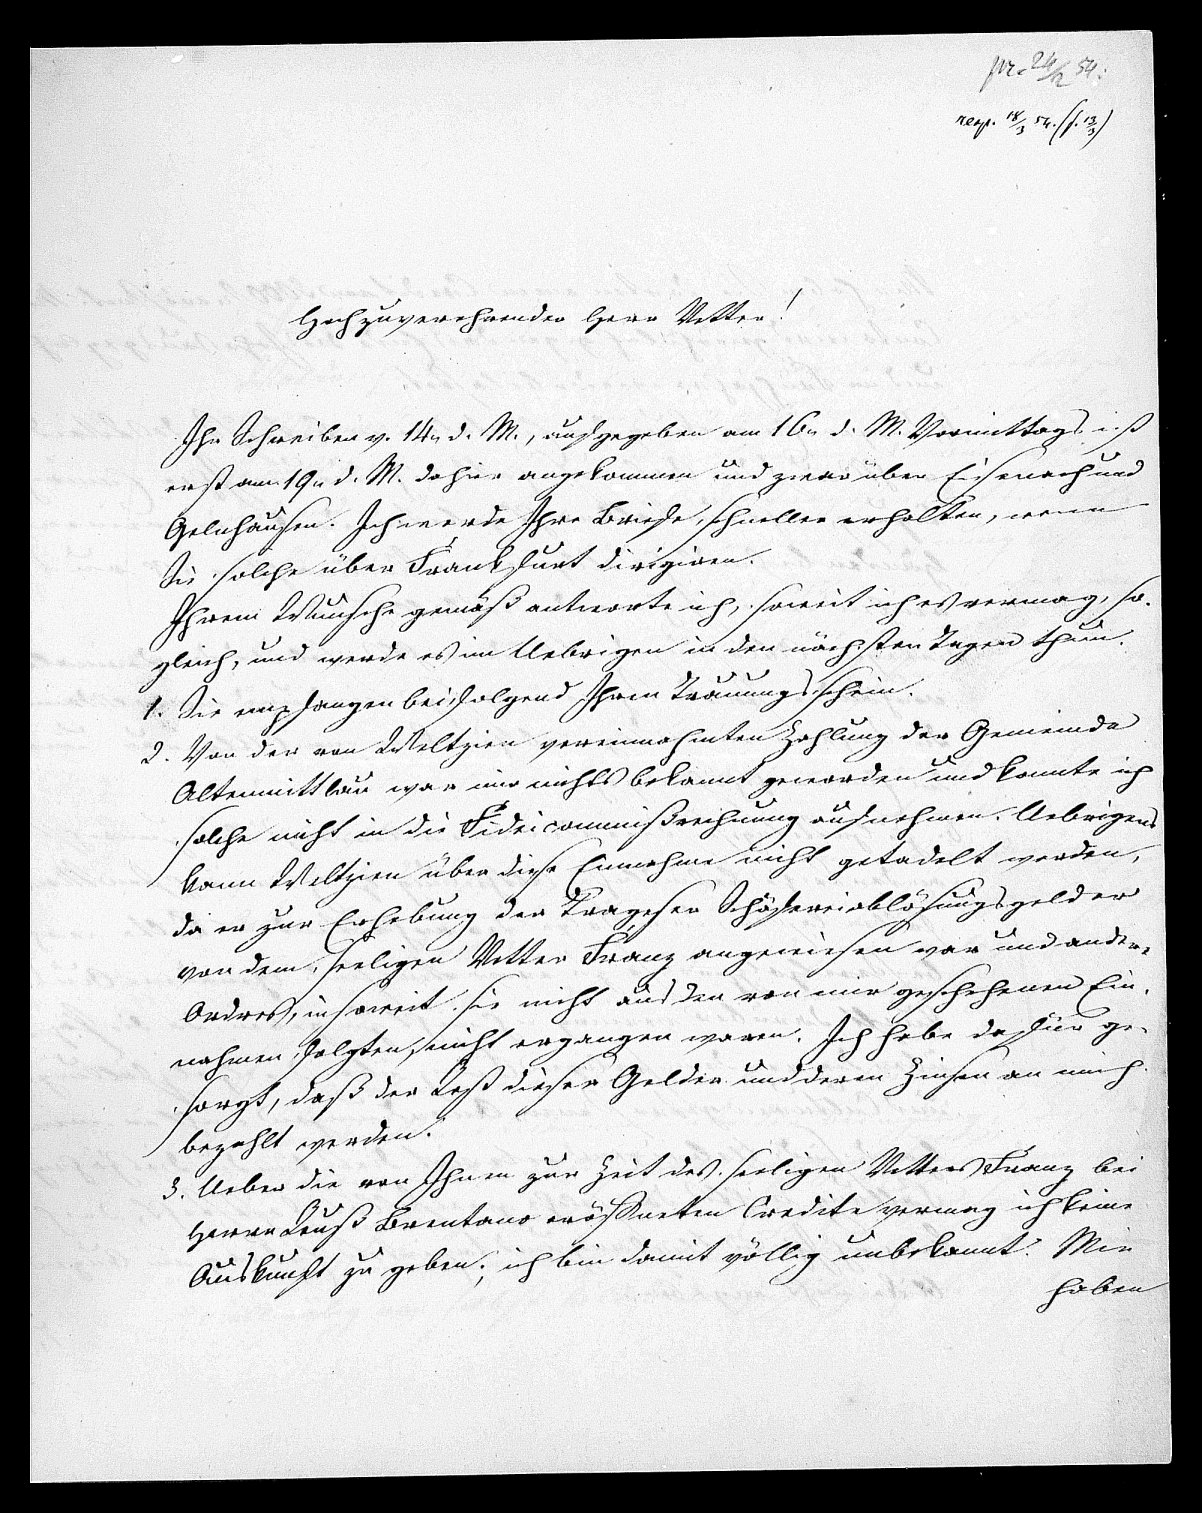 pr. 24/2 54.
resp. 18/3 54. (s. 13/3)
Hochzuverehrender Herr Vetter!
Ihr Schreiben v. 14n d. M., aufgegeben am 16n d. M. Vormittags, ist
erst am 19n d. M. dahier angekommen und zwar über Eisenach und
Gelnhausen. Ich werde Ihre Briefe schneller erhalten, wenn
Sie solche über Frankfurt dirigiren.
Ihrem Wunsche gemäß antworte ich, soweit ich es vermag, so-
gleich, und werde es im Uebrigen in den nächsten Tagen thun.
1. Sie empfangen beifolgend Ihren Trauungsschein.
2. Von der von Weltzien vereinnahmten Zahlung der Gemeinde
Altenmittlau war mir nichts bekannt geworden und konnte ich
solche nicht in die Fideicommißrechnung aufnehmen. Uebrigens
kann Weltzien über diese Einnahme nicht getadelt werden,
da er zur Erhebung der Trageser Schäfereiablösungsgelder
von dem seeligen Vetter Franz angewiesen war und andere
Ordres, in soweit sie nicht aus den von mir geschehenen Ein-
nahmen folgten, nicht ergangen waren. Ich habe dafür ge-
sorgt, daß der Rest dieser Gelder und deren Zinsen an mich
bezahlt werden.
3. Ueber die von Ihnen zur Zeit des seeligen Vetters Franz bei
Herrn Louis Brentano eröffneten Credite vermag ich keine
Auskunft zu geben; ich bin damit völlig unbekannt. Mir
haben